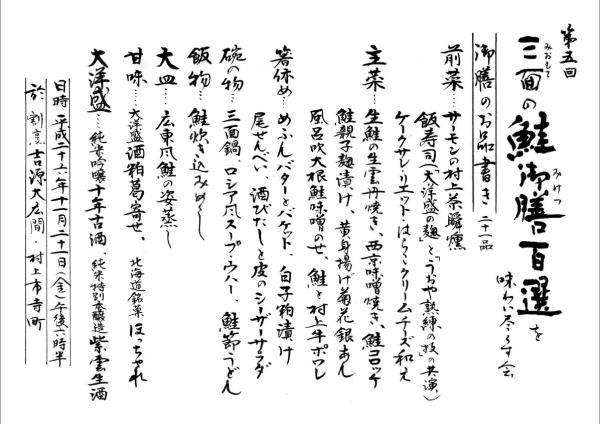 第五回
三面の鮭御膳百選を
みおもて
みけつ
味わい尽くす会
御膳のお品書き 二十一品
前菜…サーモンの村上茶瞬燻
飯寿司(「大洋盛の麹」と「うおや熟練の技」の共演)
ケークサレ・リエット・はらこクリームチーズ和え
主菜…生鮭の生雲丹焼き、西京味噌焼き、鮭コロッケ
鮭親子麹漬け、黄身揚げ菊花銀あん
風呂吹大根鮭味噌のせ、鮭と村上牛ポワレ
箸休め…めふんバターとバケット、白子粕漬け
尾せんべい、酒びたしと皮のシーザーサラダ
碗の物…三面鍋、ロシア風スープ・ウハー、鮭節うどん
飯物 鮭炊き込みめし
大皿…広東風鮭の姿蒸し
甘味…大洋盛酒粕葛寄せ、北海道銘菓ほっちゃれ
大洋盛…純米吟醸十年古酒、純米特別本醸造紫雲生酒
日時 平成二十六年十一月二十一日(金)午後六時半
於 割烹吉源大広間・村上市寺町